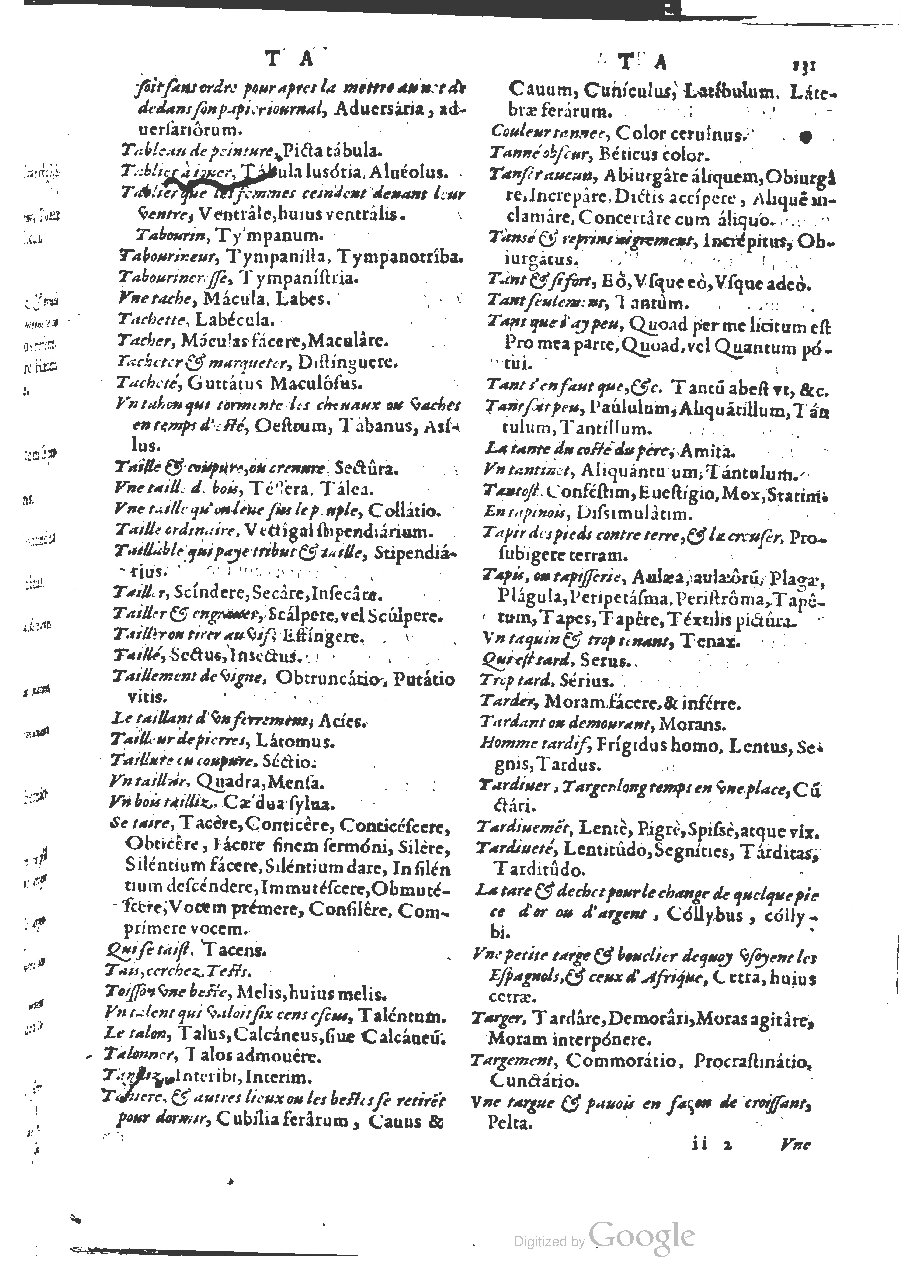 T A
soit sans ordre pour apres la mettre au net de
dedans son papier iournal, Aduersária, ad-
uersariôrum.
Tableau de peinture, Picta tábula.
Tablier à iouer, Tábula lusória, Aluéolus.
Tablier que les femmes ceindent deuant leur
ventre, Ventrâle, huius ventrâlis.
Tabourin, Ty'mpanum.
Tabourineur, Tympanista, Tympanotríba.
Tabourineresse, Tympanístria.
Vne tache, Mácula, Labes.
Tachette, Labécula.
Tacher, Máculas fácere, Maculâre.
Tacheter & marqueter, Distínguere.
Tacheté, Guttátus Maculôsus.
Vn tahon qui tormente les cheuaux ou vaches
en temps d'esté, Oestrum, Tábanus, Así-
lus.
Taille & coupure, ou creneure, Sectûra.
Vne taille de bois, Téssera, Tálea.
Vne taille qu'on leue sus le peuple, Collátio.
Taille ordinaire, Vectígal stipendiárium.
Taillable qui paye tribut & taille, Stipendiá-
rius.
Tailler, Scíndere, Secâre, Insecâre.
Tailler & engrauer, Scálpere, vel Scúlpere.
Tailler ou tirer au vif, Effíngere.
Taillé, Sectus, Insectus.
Taillement de vigne, Obtruncátio, Putátio
vitis.
Le taillant d'vn ferrement, Acíes.
Tailleur de pierres, Látomus.
Taillure ou coupure, Séctio.
Vn tailloir, Quadra, Mensa.
Vn bois tailliz, Cædua sylua.
Se taire, Tacère, Conticêre, Conticéscere,
Obticêre, Fácere finem sermóni, Silère,
Siléntium fácere, Siléntium dare, In silén
tium descéndere, Immutéscere, Obmuté-
scere, Vocem prémere, Consilêre, Com-
primere vocem.
Qui se taist, Tacens.
Tais, cerchez Tests.
Toisson vne beste, Melis, huius melis.
Vn talent qui valoit six cens escus, Taléntum.
Le talon, Talus, Calcáneus, siue Calcáneũ.
Talonner, Talos admouêre.
Tandiz, Interibi, Interim.
Taniere, & autres lieux ou les bestes se retirẽt
pour dormir, Cubília ferârum, Cauus &
T A
131
Cauum, Cunículus, Latíbulum. Láte-
bræ ferárum.
Couleur tannee, Color ceruínus.
Tanné obscur, Béticus color.
Tanser aucun, Abiurgâre áliquem, Obiurgâ
re, Increpâre, Dictis accípere, Aliquẽ in-
clamáre, Concertâre cum áliquo.
Tansé & reprins aigrement, Incrépitus, Ob-
iurgátus.
Tant & si fort, Eò, Vsque eò, Vsque adeò.
Tant seulement, Tantùm.
Tant que i'ay peu, Quoad per me licitum est
Pro mea parte, Quoad, vel Quantum pó-
tui.
Tant s'en faut que, &c. Tantũ abest vt, &c.
Tant soit peu, Paúlulum, Aliquãtillum, Tán
tulum, Tantillum.
La tante du costé du pere, Amita.
Vn tantinet, Aliquántulum, Tántulum.
Tantost, Conféstim, Euestígio, Mox, Statim.
En tapinois, Dissimulâtim.
Tapir des pieds contre terre, & la creuser, Pro-
subígere terram.
Tapis, ou tapisserie, Aulæa, aulæôrũ, Plaga,
Plágula, Peripetásma, Peristrôma, Tapê-
tum, Tapes, Tapête, Téxtilis pictûra.
Vn taquin & trop tenant, Tenax.
Qui est tard, Serus.
Trop tard, Sérius.
Tarder, Moram fácere, & inférre.
Tardant ou demourant, Morans.
Homme tardif, Frígidus homo, Lentus, Se-
gnis, Tardus.
Tardiuer, Targer long temps en vne place, Cũ
ctári.
Tardiuemẽt, Lentè, Pigrè, Spissè, atque vix.
Tardiueté, Lentitûdo, Segníties, Tárditas,
Tarditûdo.
La tare & dechet pour le change de quelque pie
ce d'or ou d'argent, Cóllybus, cólly-
bi.
Vne petite targe & bouclier dequoy vsoyent les
Espagnols, & ceux d'Afrique, Cetra, huius
cetræ.
Targer, Tardâre, Demorâri, Moras agitâre,
Moram interpónere.
Targement, Commorátio, Procrastinátio,
Cunctátio.
Vne targue & pauois en façon de croissant,
Pelta.
ii 2 Vne
Digitized by Google